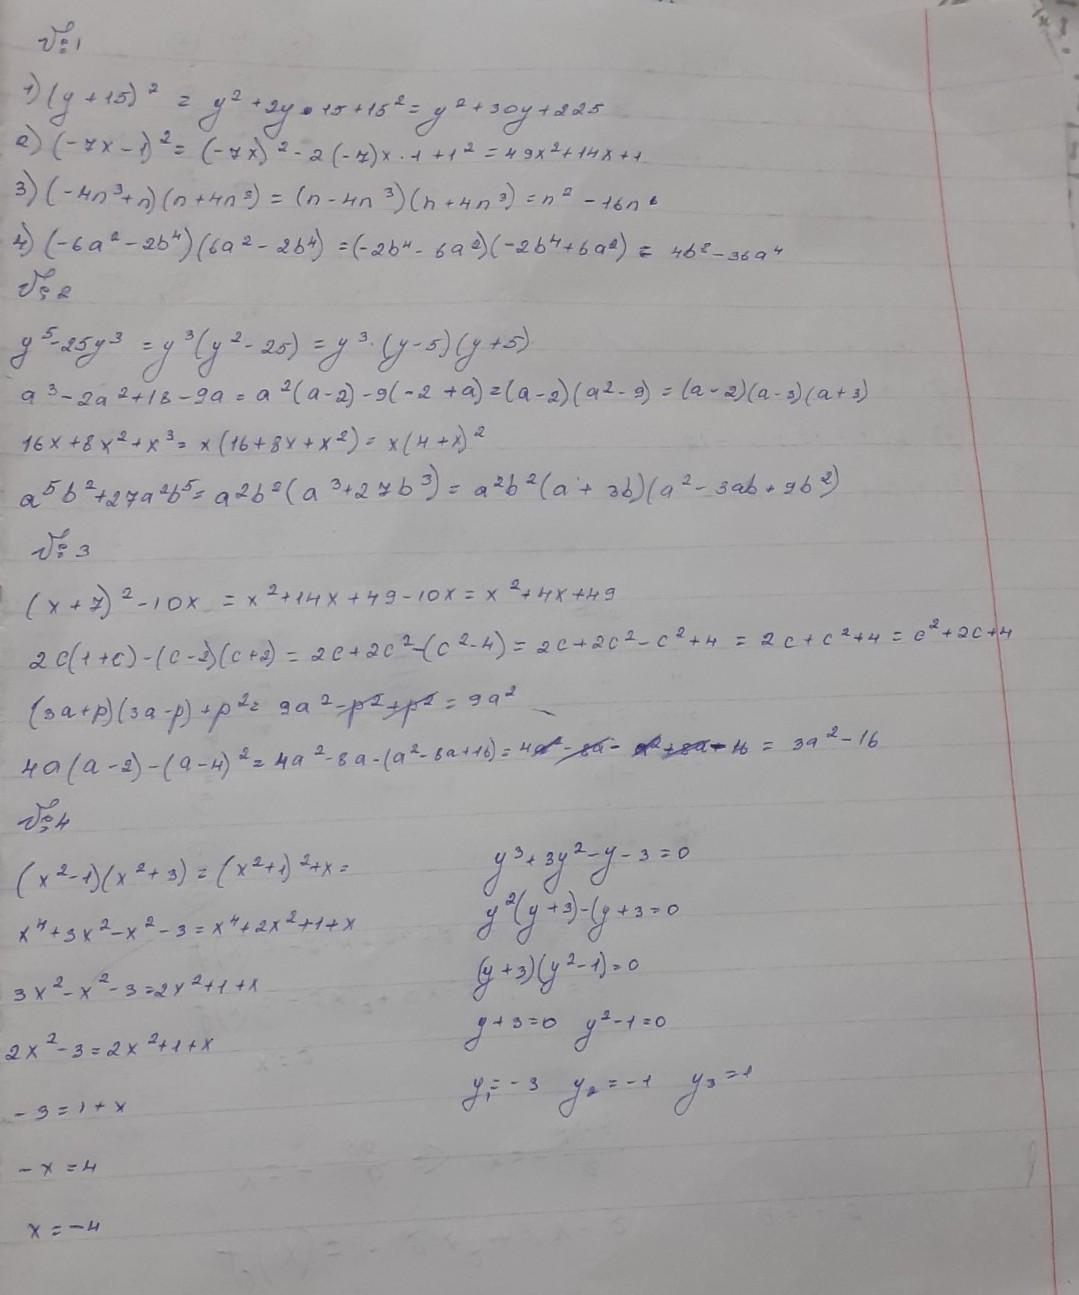 №1
1) (y + 15)² = y² + 2y • 15 + 15² = y² + 30y + 225
2) (-7x - 1)² = (-7x)² - 2(-7)x · 1 + 1² = 49x² + 14x + 1
3) (-4n³ + n)(n + 4n³) = (n - 4n³)(n + 4n³) = n² - 16n⁶
4) (-6a² - 2b⁴)(6a² - 2b⁴) = (-2b⁴ - 6a²)(-2b⁴ + 6a²) = 4b⁸ - 36a⁴
№2
y⁵ - 25y³ = y³(y² - 25) = y³ · (y - 5)(y + 5)
a³ - 2a² + 18 - 9a = a²(a - 2) - 9(-2 + a) = (a - 2)(a² - 9) = (a - 2)(a - 3)(a + 3)
16x + 8x² + x³ = x(16 + 8x + x²) = x(4 + x)²
a⁵b² + 27a²b⁵ = a²b²(a³ + 27b³) = a²b²(a + 3b)(a² - 3ab + 9b²)
№3
(x + 7)² - 10x = x² + 14x + 49 - 10x = x² + 4x + 49
2c(1 + c) - (c - 2)(c + 2) = 2c + 2c² - (c² - 4) = 2c + 2c² - c² + 4 = 2c + c² + 4 = c² + 2c + 4
(3a + p)(3a - p) + p² = 9a² - p² + p² = 9a²
4a(a - 2) - (a - 4)² = 4a² - 8a - (a² - 8a + 16) = 4a² - 8a - a² + 8a - 16 = 3a² - 16
№4
(x² - 1)(x² + 3) = (x² + 1)² + x =
x⁴ + 3x² - x² - 3 = x⁴ + 2x² + 1 + x
3x² - x² - 3 = 2x² + 1 + x
2x² - 3 = 2x² + 1 + x
- 3 = 1 + x
- x = 4
x = -4
y³ + 3y² - y - 3 = 0
y²(y + 3) - (y + 3 = 0
(y + 3)(y² - 1) = 0
y + 3 = 0 y² - 1 = 0
y₁ = -3 y₂ = -1 y₃ = 1